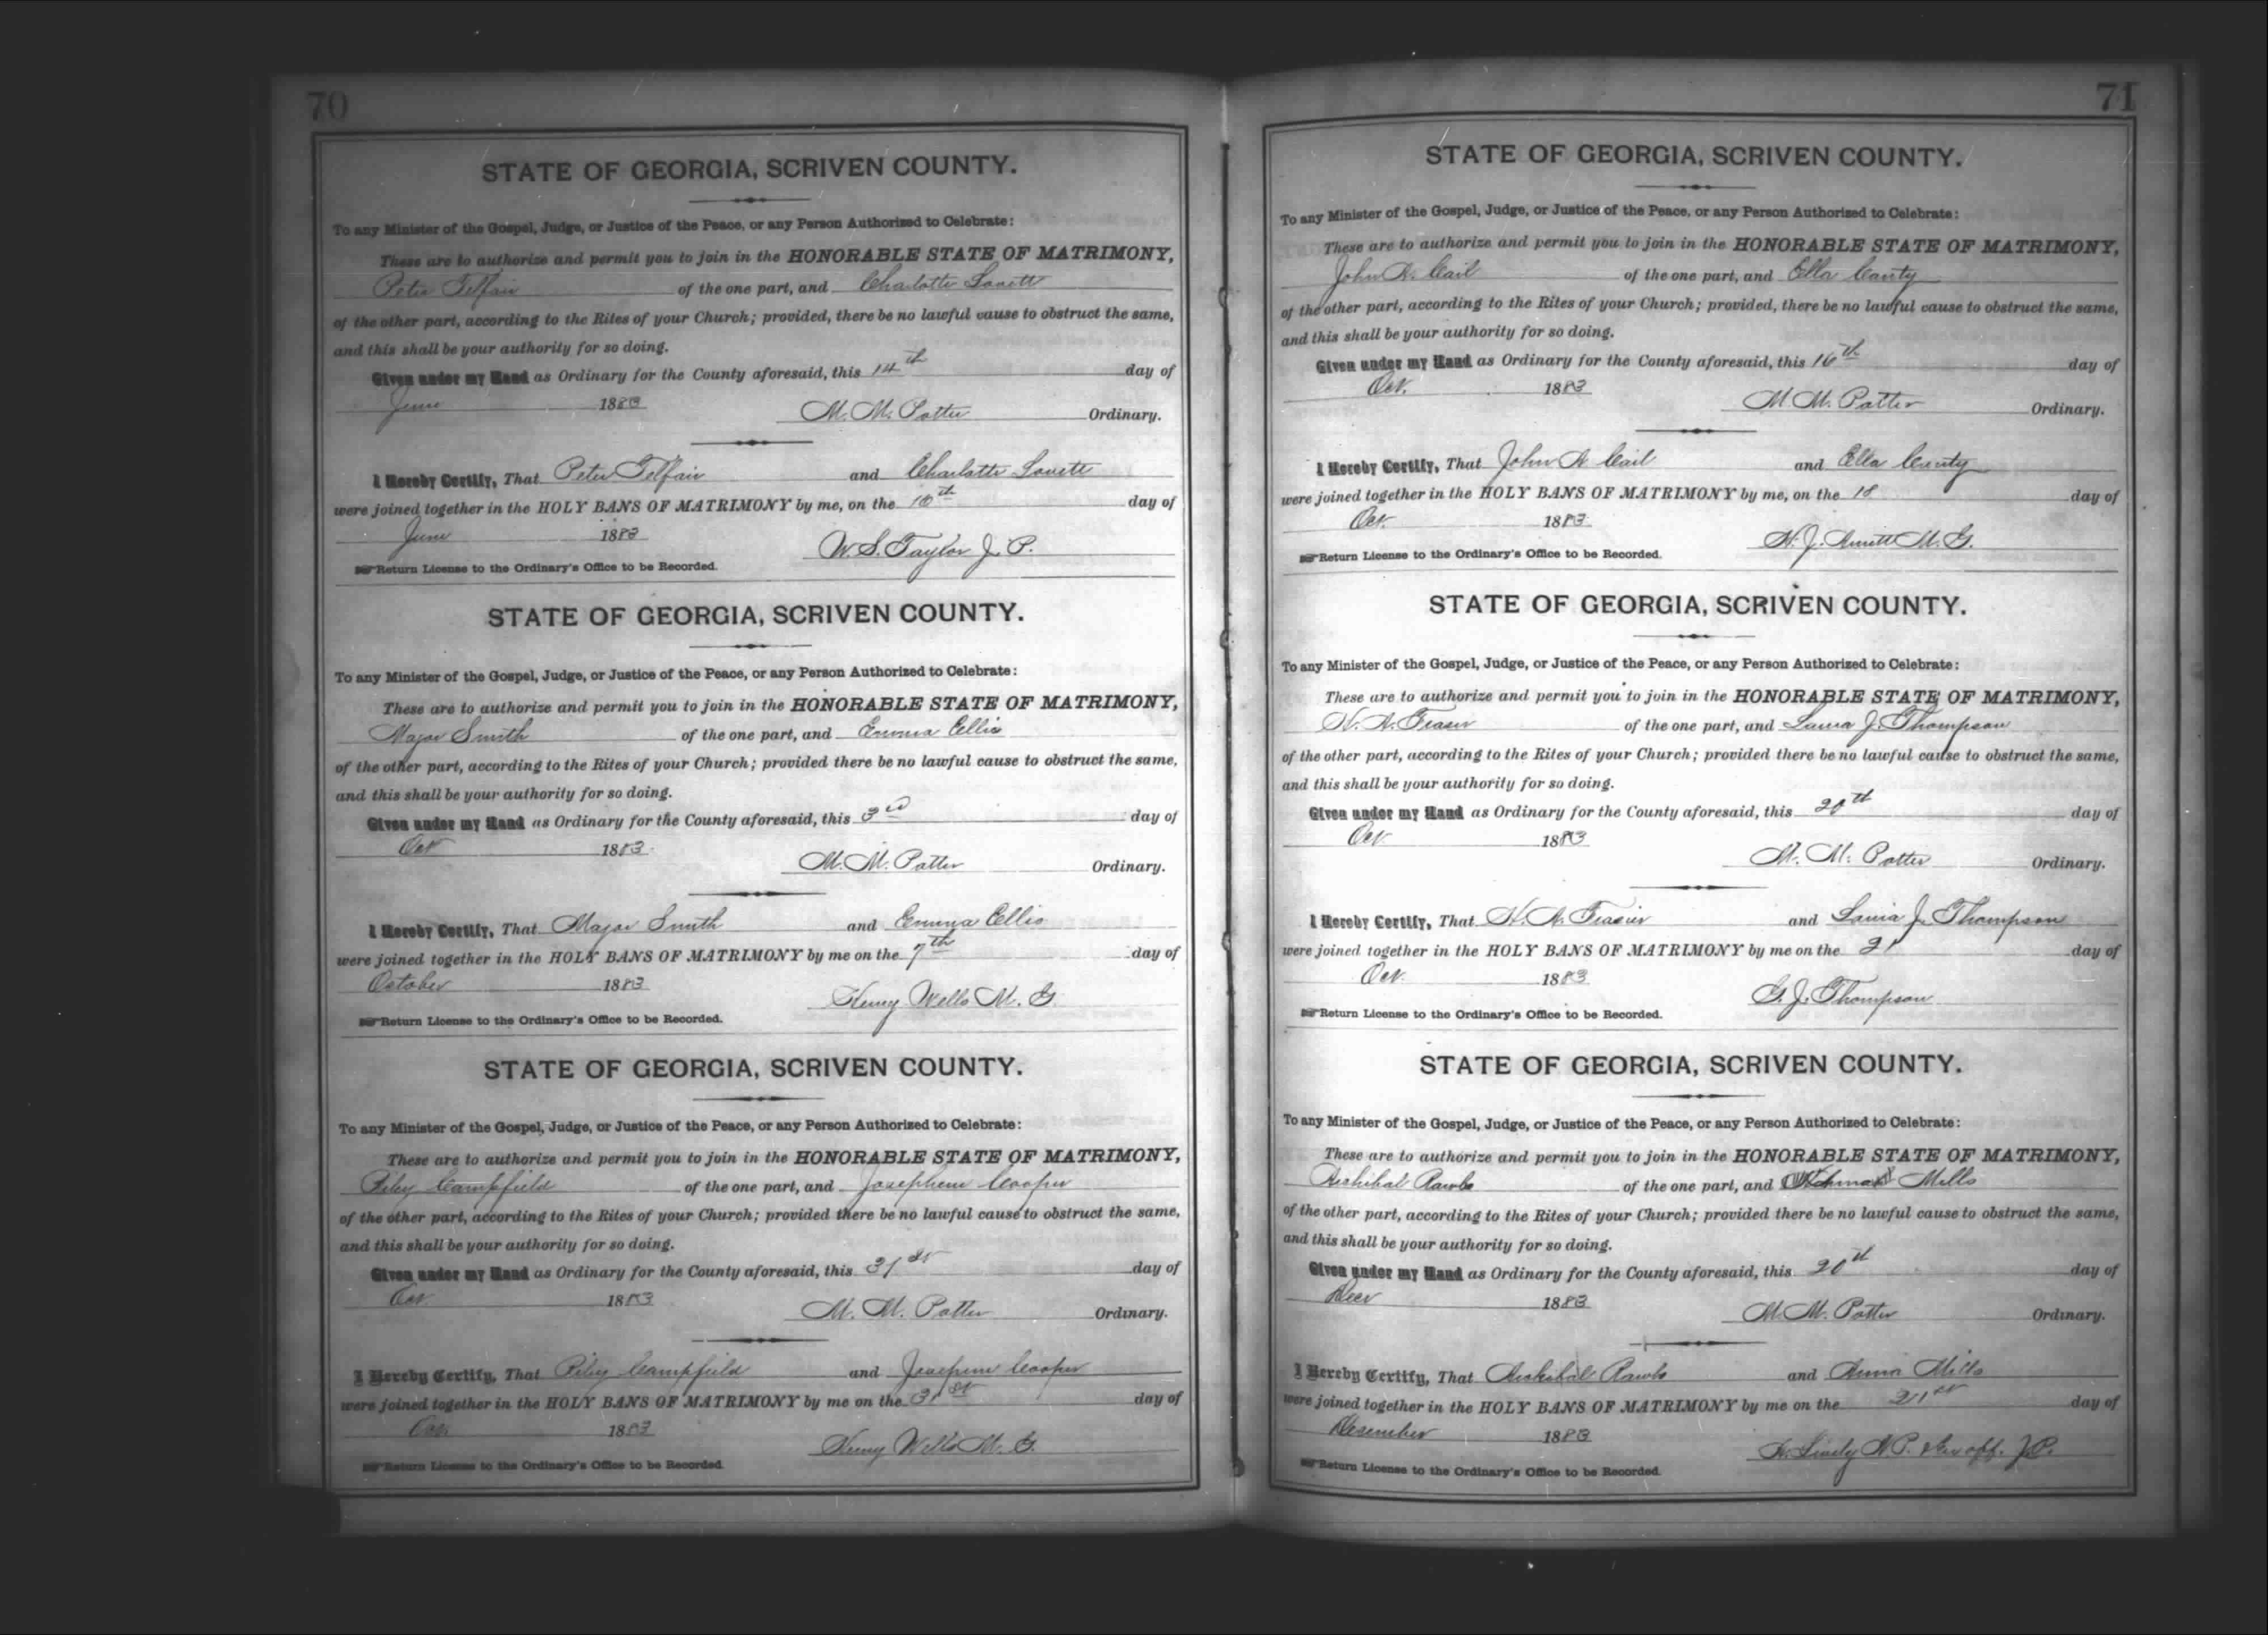 70
STATE OF GEORGIA, SCRIVEN COUNTY.
To any Minister of the Gospel, Judge, or Justice of the Peace, or any Person Authorized to Celebrate:
These are to authorize and permit you to join in the HONORABLE STATE OF MATRIMONY,
Peter Telfair of the one part, and Charlotte Lovett
of the other part, according to the Rites of your Church; provided, there be no lawful cause to obstruct the same,
and this shall be your authority for so doing.
Given under my Hand as Ordinary for the County aforesaid, this 14th day of
June 1883 M. M. Potter Ordinary.
I Hereby Certify, That Peter Telfair and Charlotte Lovett
were joined together in the HOLY BANS OF MATRIMONY by me, on the day of
June 1883 W. S. Taylor J. P.
Return License to the Ordinary's Office to be Recorded.
STATE OF GEORGIA, SCRIVEN COUNTY.
To any Minister of the Gospel, Judge, or Justice of the Peace, or any Person Authorized to Celebrate:
These are to authorize and permit you to join in the HONORABLE STATE OF MATRIMONY,
Major Smith of the one part, and Emma Ellis
of the other part, according to the Rites of your Church; provided there be no lawful cause to obstruct the same,
and this shall be your authority for so doing.
Given under my Hand as Ordinary for the County aforesaid, this 3rd day of
Oct 1883 M. M. Potter Ordinary.
I Hereby Certify, That Major Smith and Emma Ellis
were joined together in the HOLY BANS OF MATRIMONY by me on the 7th day of
October 1883 Henry Wells M. G.
Return License to the Ordinary's Office to be Recorded.
STATE OF GEORGIA, SCRIVEN COUNTY.
To any Minister of the Gospel, Judge, or Justice of the Peace, or any Person Authorized to Celebrate:
These are to authorize and permit you to join in the HONORABLE STATE OF MATRIMONY,
Riley Campfield of the one part, and Josephene Cooper
of the other part, according to the Rites of your Church; provided there be no lawful cause to obstruct the same,
and this shall be your authority for so doing.
Given under my Hand as Ordinary for the County aforesaid, this 31st day of
Oct 1883 M. M. Potter Ordinary.
I Hereby Certify, That Riley Campfield and Cooper
were joined together in the HOLY BANS OF MATRIMONY by me on the 31st day of
Oct. 1883 Henry Wells M. G.
Return License to the Ordinary's Office to be Recorded.
71
STATE OF GEORGIA, SCRIVEN COUNTY.
To any Minister of the Gospel, Judge, or Justice of the Peace, or any Person Authorized to Celebrate:
These are to authorize and permit you to join in the HONORABLE STATE OF MATRIMONY,
John A. Cail of the one part, and Ella Canty
of the other part, according to the Rites of your Church; provided, there be no lawful cause to obstruct the same,
and this shall be your authority for so doing.
Given under my Hand as Ordinary for the County aforesaid, this 16th day of
Oct. 1883 M. M. Potter Ordinary.
I Hereby Certify, That John A Cail and Ella Canty
were joined together in the HOLY BANS OF MATRIMONY by me, on the 18 day of
Oct. 1883 M. G.
Return License to the Ordinary's Office to be Recorded.
STATE OF GEORGIA, SCRIVEN COUNTY.
To any Minister of the Gospel, Judge, or Justice of the Peace, or any Person Authorized to Celebrate:
These are to authorize and permit you to join in the HONORABLE STATE OF MATRIMONY,
H. A. Frasier of the one part, and J. Thompson
of the other part, according to the Rites of your Church; provided there be no lawful cause to obstruct the same,
and this shall be your authority for so doing.
Given under my Hand as Ordinary for the County aforesaid, this 20th day of
Oct. 1883 M. M. Potter Ordinary.
I Hereby Certify, That H. A. Frasier and J. Thompson
were joined together in the HOLY BANS OF MATRIMONY by me on the 21 day of
Oct. 1883 G. J. Thompson
Return License to the Ordinary's Office to be Recorded.
STATE OF GEORGIA, SCRIVEN COUNTY.
To any Minister of the Gospel, Judge, or Justice of the Peace, or any Person Authorized to Celebrate:
These are to authorize and permit you to join in the HONORABLE STATE OF MATRIMONY,
Archibal Rawls of the one part, and Mills
of the other part, according to the Rites of your Church; provided there be no lawful cause to obstruct the same,
and this shall be your authority for so doing.
Given under my Hand as Ordinary for the County aforesaid, this 20th day of
Decr 1883 M. M. Potter Ordinary.
I Hereby Certify, That Archibal Rawls and Anna Mills
were joined together in the HOLY BANS OF MATRIMONY by me on the 21st day of
Desember 1883 H. Lively N. P. & Ex off. J. P.
Return License to the Ordinary's Office to be Recorded.